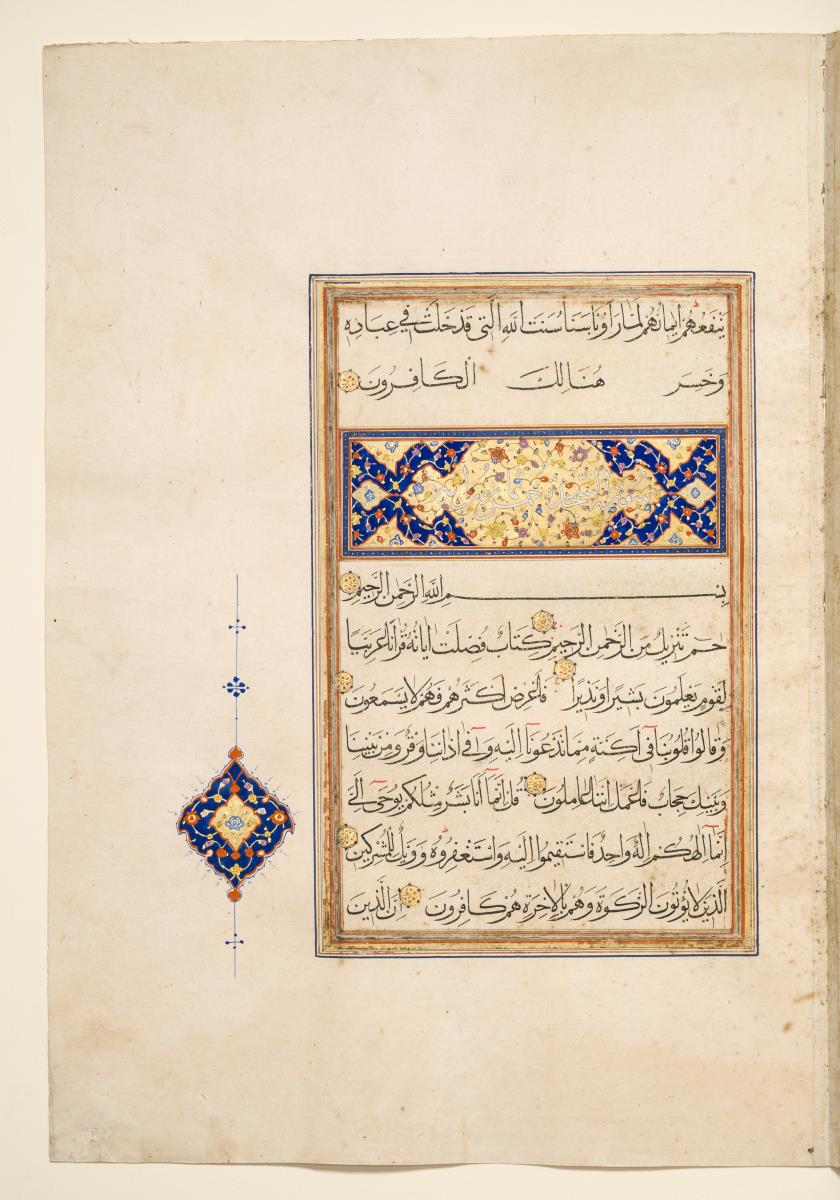 ينفعهم ايمانهم لما راوا باسنا سنت الله التى قد خلت فى عباده
وخسر هنالك الكافرون
سورة السجدة
بسم الله الرحمن الرحيم
حم تنزيل من الرحمن الرحيم كتاب فصلت اياته قرانا عربيا
لقوم يعلمون بشيرا ونذيرا فاعرض اكثرهم فهم لا يسمعون
وقالوا قلوبنا فى اكنة مما تدعونا اليه وفى اذاننا وقر ومن بيننا
وبينك حجاب فاعمل اننا عاملون قل انما انا بشر مثلكم يوحى الى
انما الهكم اله واحد فاستقيموا اليه واستغفروه وويل للمشركين
الذين لا يؤتون الزكوة وهم بالاخرة هم كافرون ان الذين